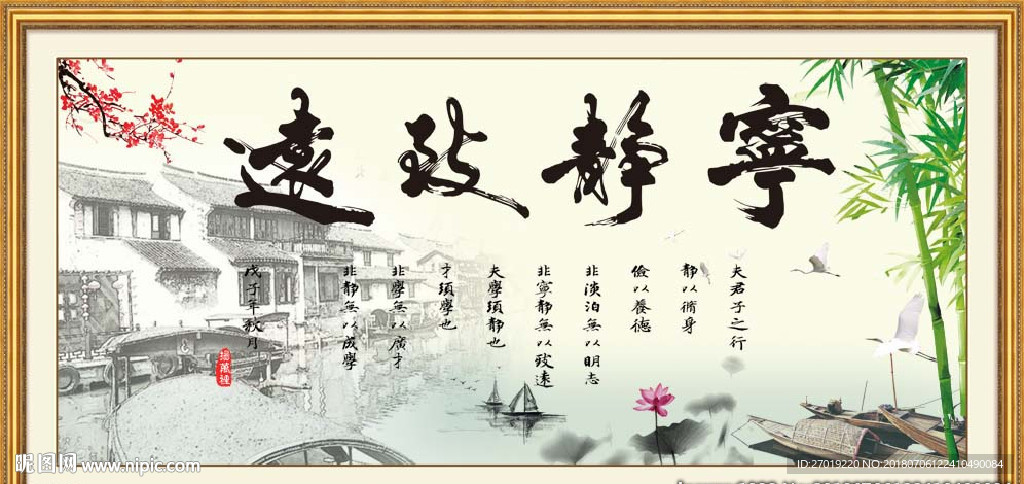 寧靜致遠
夫君子之行
靜以脩身
儉以養德
非淡泊無以明志
非寧靜無以致遠
夫學須靜也
才須學也
非學無以廣才
非靜無以成學
戊子年秋月
昵图网 www.nipic.com
ID:27019220 NO:20180706122410490084